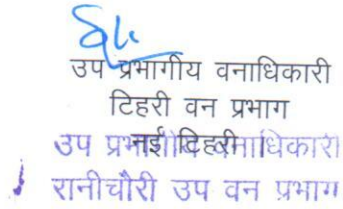 उप प्रभागीय वनाधिकारी
टिहरी वन प्रभाग
नई टिहरी
उप प्रभागीय वनाधिकारी
रानीचौरी उप वन प्रभाग